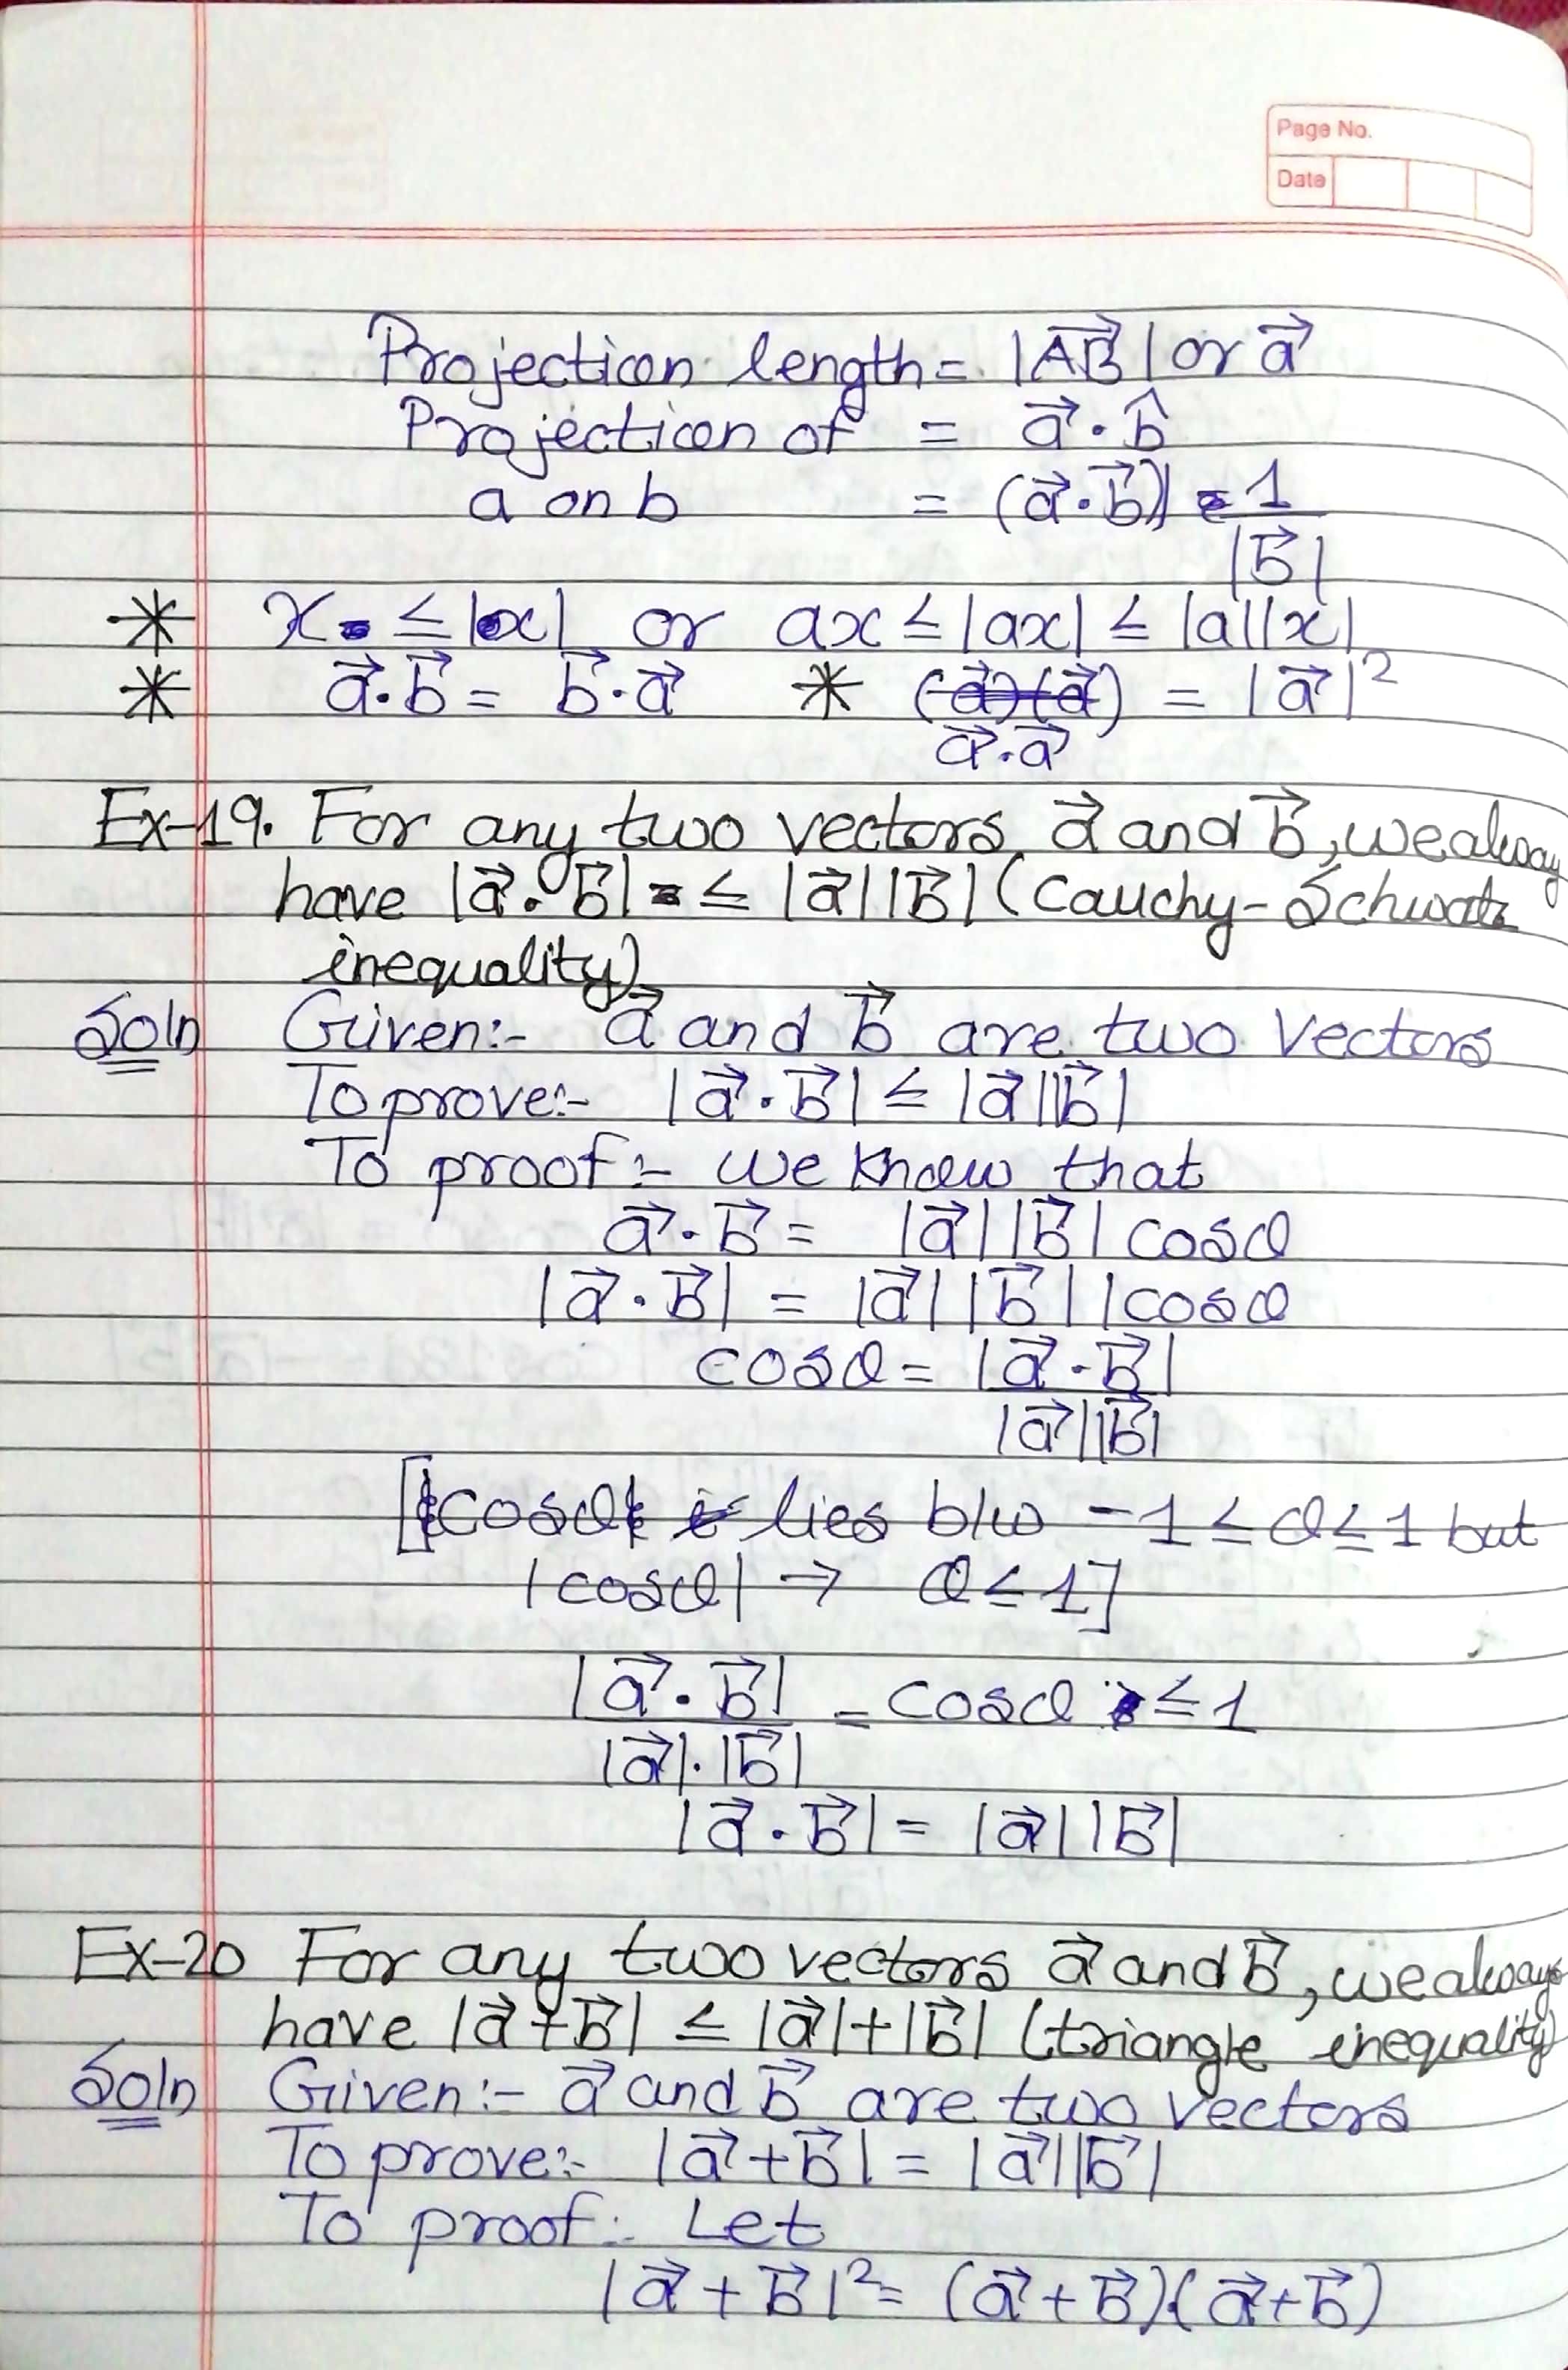 Page No.
Date
Projection length = |AB⃗| or a⃗
Projection of = a⃗ · b̂
a on b = (a⃗·b⃗) 1/|b⃗|
* x ≤ |x| or ax ≤ |ax| ≤ |a||x|
* a⃗·b⃗ = b⃗·a⃗ * a⃗·a⃗ = |a⃗|²
Ex-19. For any two vectors a⃗ and b⃗, we alway
have |a⃗·b⃗| ≤ |a⃗||b⃗| (Cauchy-
inequality)
Soln Given:- a⃗ and b⃗ are two vectors
To prove:- |a⃗·b⃗| ≤ |a⃗||b⃗|
To proof:- we know that
a⃗·b⃗ = |a⃗||b⃗| cosθ
|a⃗·b⃗| = |a⃗||b⃗| |cosθ
cosθ = |a⃗·b⃗|
|a⃗||b⃗|
[cosθ lies b/w -1 ≤ θ ≤ 1 but
|cosθ| → θ ≤ 1]
|a⃗·b⃗| = cosθ ≤ 1
|a⃗|·|b⃗|
|a⃗·b⃗| = |a⃗||b⃗|
Ex-20 For any two vectors a⃗ and b⃗, we always
have |a⃗+b⃗| ≤ |a⃗|+|b⃗| (triangle inequality)
Soln Given:- a⃗ and b⃗ are two vectors
To prove:- |a⃗+b⃗| = |a⃗||b⃗|
To proof:- Let
|a⃗+b⃗|² = (a⃗+b⃗)·(a⃗+b⃗)